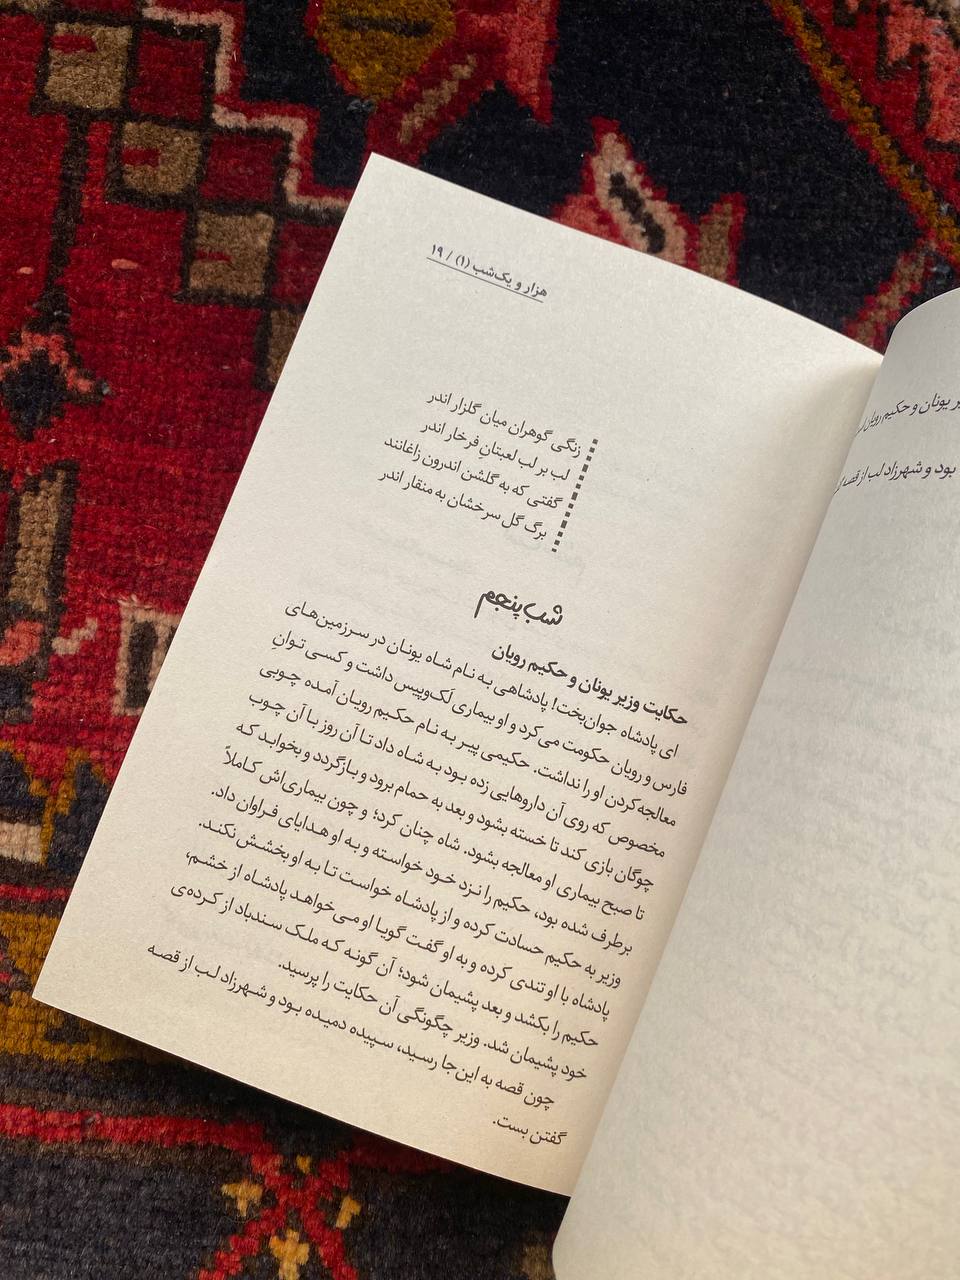 هزار و یک‌شب (۱) / ۱۹
زنگی گوهران میان گلزار اندر
لب بر لب لعبتانِ فرخار اندر
گفتی که به گلشن اندرون زاغانند
برگ گل سرخشان به منقار اندر
شب پنجم
حکایت وزیر یونان و حکیم رویان
ای پادشاه جوان‌بخت! پادشاهی به نام شاه یونان در سرزمین‌های
فارس و رویان حکومت می‌کرد و او بیماری لَک‌وپیس داشت و کسی توانِ
معالجه‌کردن او را نداشت. حکیمی پیر به نام حکیم رویان آمده چوبی
مخصوص که روی آن داروهایی زده بود به شاه داد تا آن روز با آن چوب
چوگان بازی کند تا خسته بشود و بعد به حمام برود و بازگردد و بخوابد که
تا صبح بیماری او معالجه بشود. شاه چنان کرد؛ و چون بیماری‌اش کاملاً
برطرف شده بود، حکیم را نزد خود خواسته و به او هدایای فراوان داد.
وزیر به حکیم حسادت کرده و از پادشاه خواست تا به او بخشش نکند.
پادشاه با او تندی کرده و به او گفت گویا او می‌خواهد پادشاه از خشم،
حکیم را بکشد و بعد پشیمان شود؛ آن گونه که ملک سندباد از کرده‌ی
خود پشیمان شد. وزیر چگونگی آن حکایت را پرسید.
چون قصه به این‌جا رسید، سپیده دمیده بود و شهرزاد لب از قصه
گفتن بست.
یر یونان و حکیم رویان
بود و شهرزاد لب از قصه